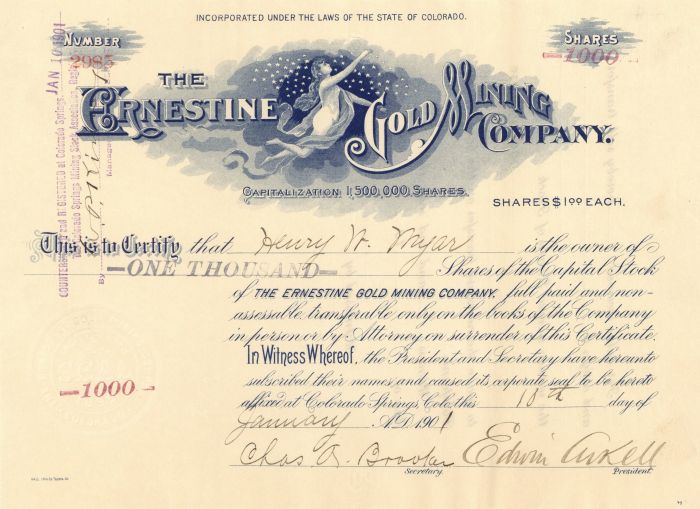 INCORPORATED UNDER THE LAWS OF THE STATE OF COLORADO.
NUMBER
2985
SHARES
-1000-
THE
ERNESTINE GOLD MINING
COMPANY.
CAPITALIZATION 1,500,000 SHARES.
SHARES $1.00 EACH.
COUNTERSIGNED and REGISTERED at Colorado Springs
JAN 10 1901
The Colorado Springs Mining Stock Association, Registrar
By
Manager
This is to Certify that Henry W. Wyar is the owner of
—ONE THOUSAND— Shares of the Capital Stock
of THE ERNESTINE GOLD MINING COMPANY, full paid and non-
assessable, transferable only on the books of the Company
in person or by Attorney on surrender of this Certificate.
In Witness Whereof, the President and Secretary have hereunto
subscribed their names and caused its corporate seal to be hereto
affixed at Colorado Springs, Colo., this 10th day of
January A.D. 1901
-1000-
Chas A. Brooker Edwin Arkell
Secretary. President.